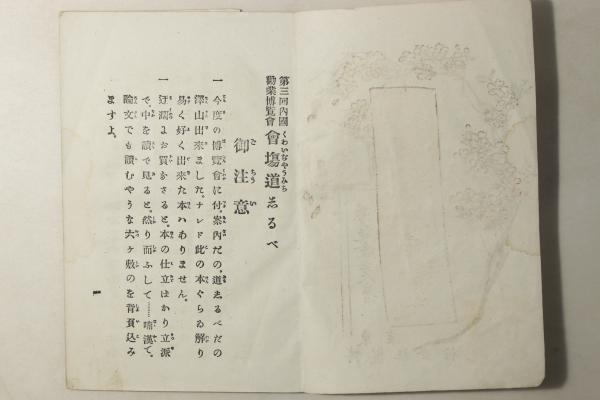 第三回內國
勸業博覽會
會塲道志るべ
御注意
一 今度の博覽會に付案內だの、道志るべだの
澤山出來ました。ナレド此の本ぐらゐ解り
易く好く出來た本ハありません。
一 お買なさると、本の仕立ばかり立派
で、中を讀で見ると、然り而ふして……
論文でも讀むやうな六ヶ敷のを背負込み
ますよ、
一